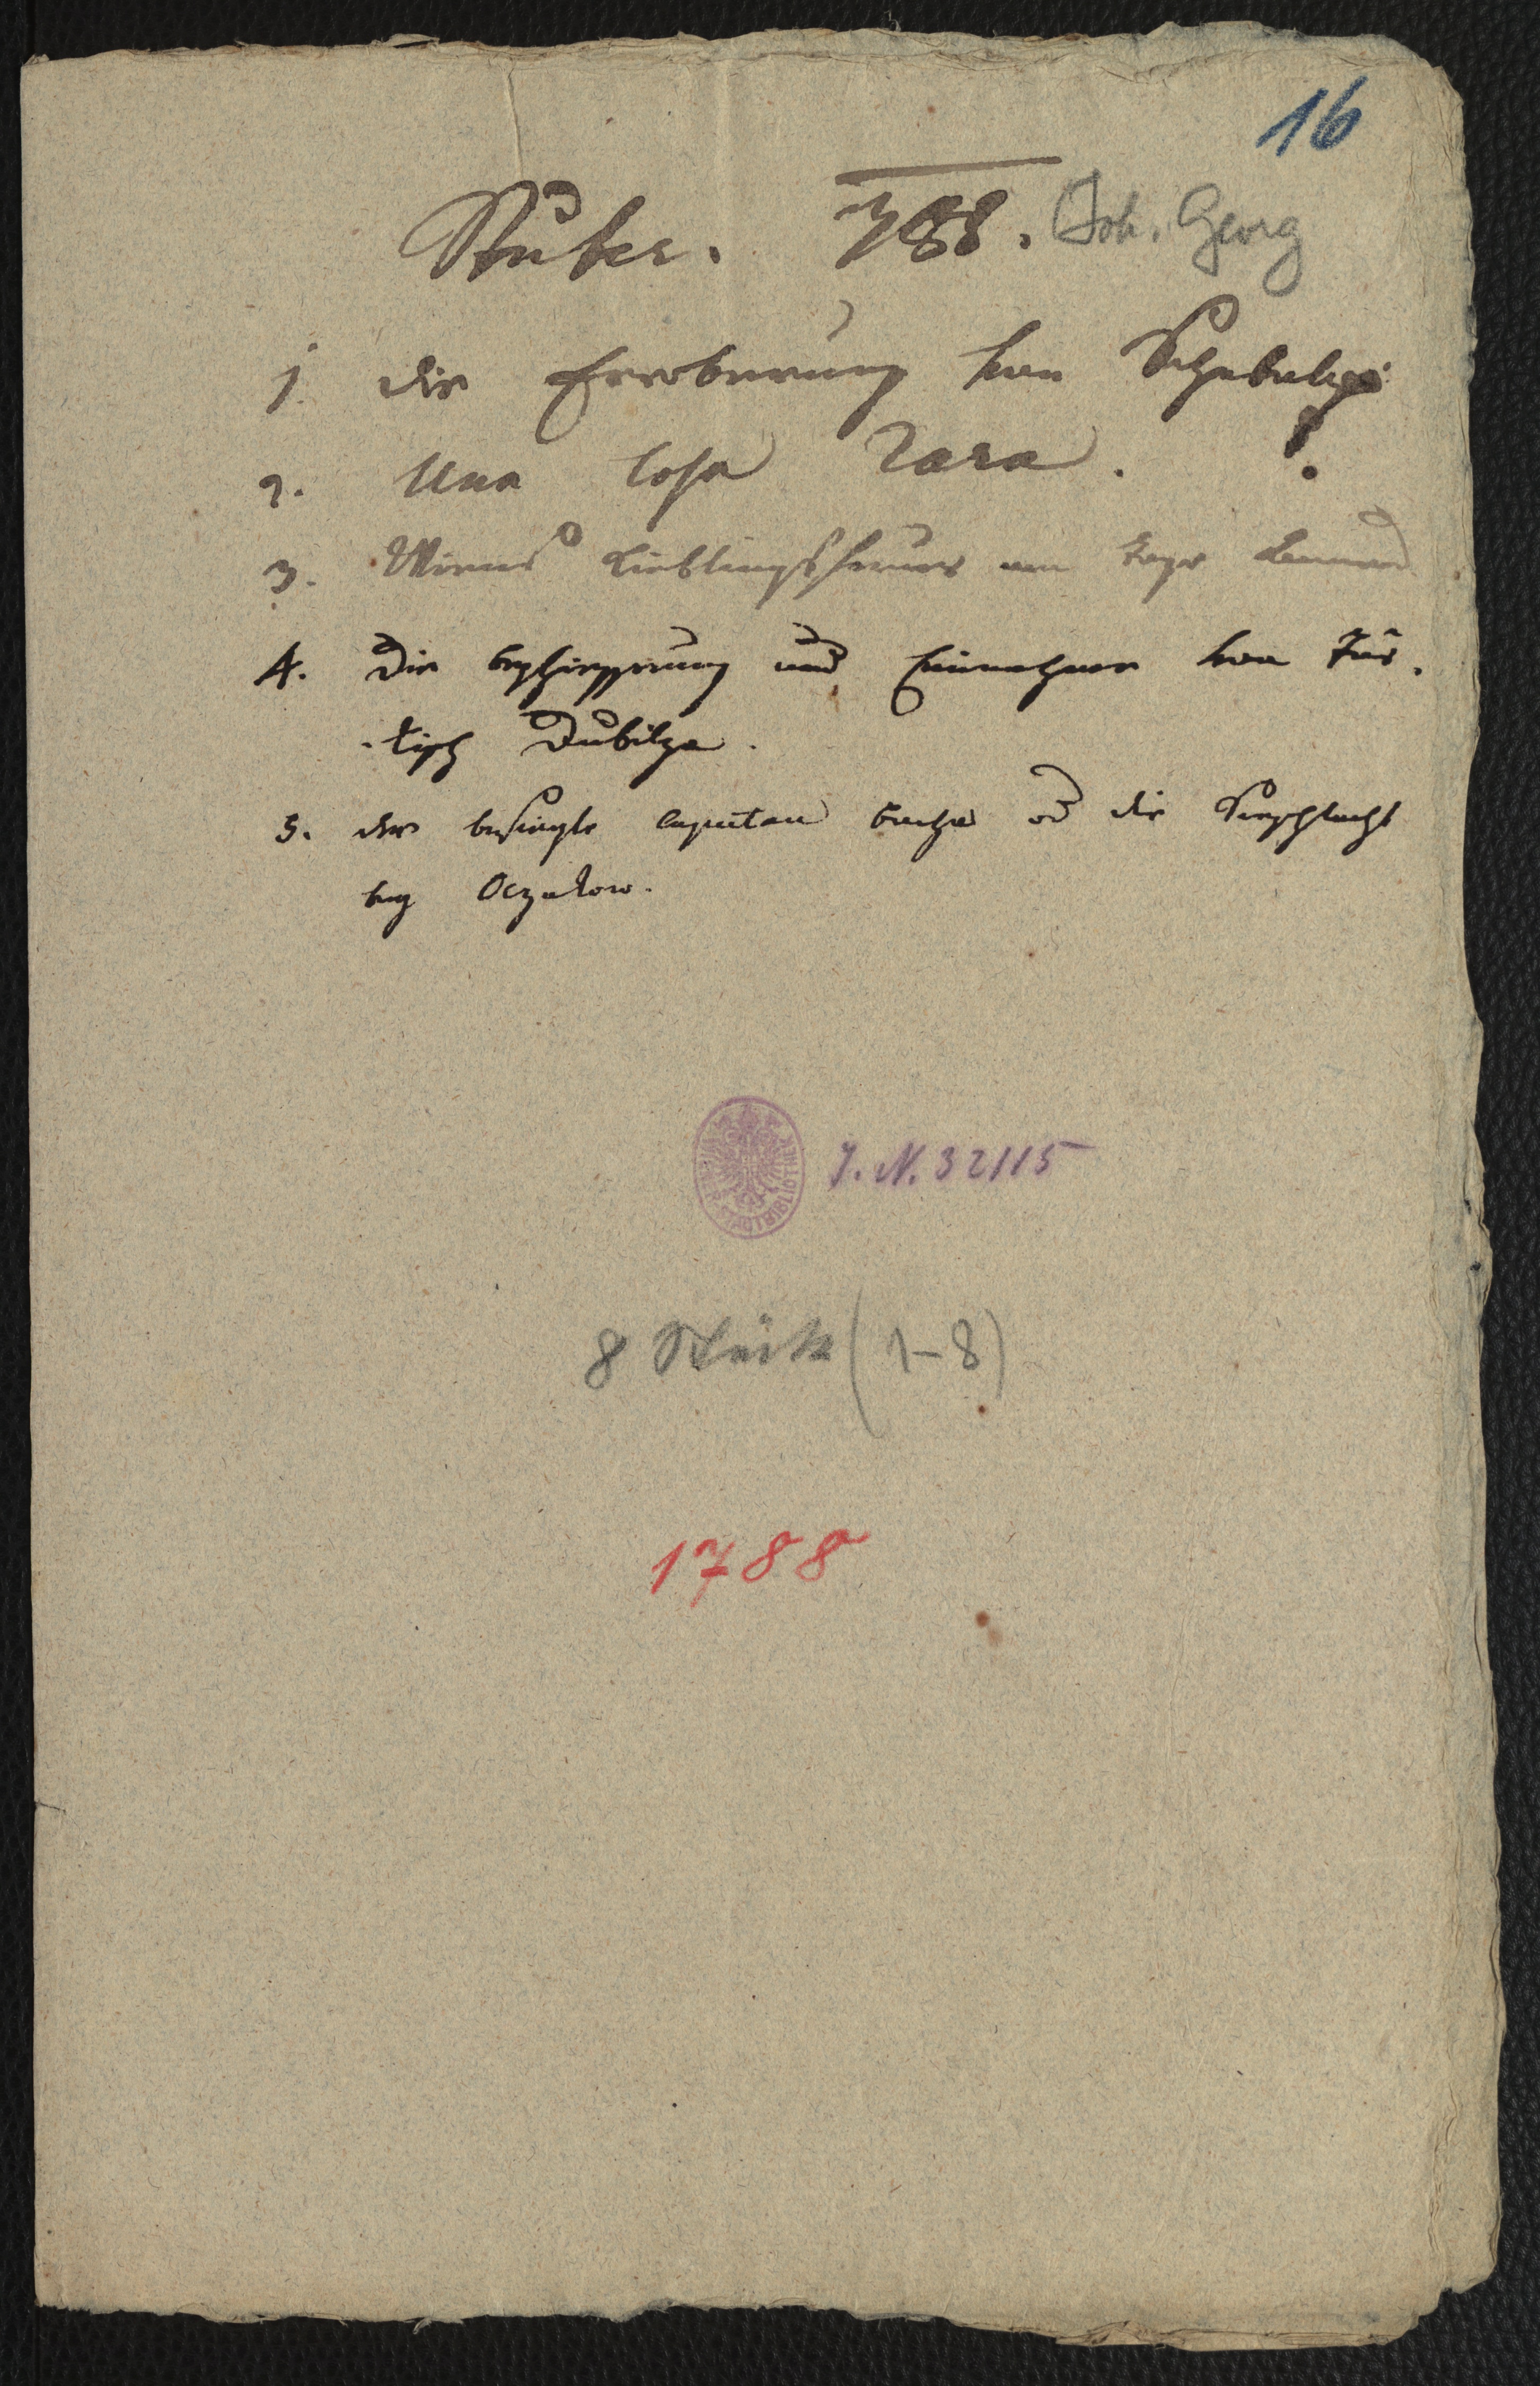 16
Stuber. 788. Joh. Georg
1. die Eroberung von Schabatz
!
2. Una Cosa Rara.
3. Wiens Lieblingsfeuer am Tage Annens
4. Die beschiessung und Einnahme von Tür-
-kisch Dubitza.
5. der besiegte Capitan Bacha od die Seeschlacht
bey Oczakow.
J. N. 32115
8 Stück (1-8)
1788